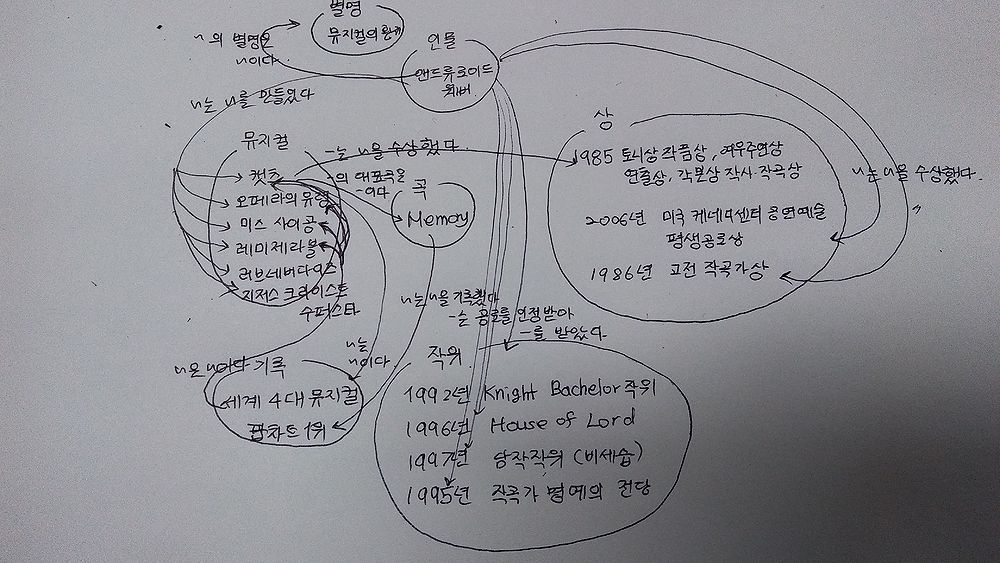 별명
뮤지컬의 황제
~의 별명은
~이다.
인물
앤드류로이드
웨버
~는 ~를 만들었다
뮤지컬
캣츠
오페라의 유령
미스 사이공
레미제라블
러브네버다이즈
지저스 크라이스트
수퍼스타
~는 ~을 수상했다.
~의 대표곡은
~이다
곡
Memory
상
1985 토니상 작품상, 여우주연상
연출상, 각본상 작사·작곡상
2006년 미국 케네디센터 공연예술
평생공로상
1986년 고전 작곡가상
~는 ~을 수상했다.
~는 ~을 기록했다
~는 공로를 인정받아
~를 받았다.
~는
~이다
~은 ~이다
기록
세계 4대 뮤지컬
팝차트 1위
작위
1992년 Knight Bachelor 작위
1996년 House of Lord
1997년 남작작위 (비세습)
1995년 작곡가 명예의 전당